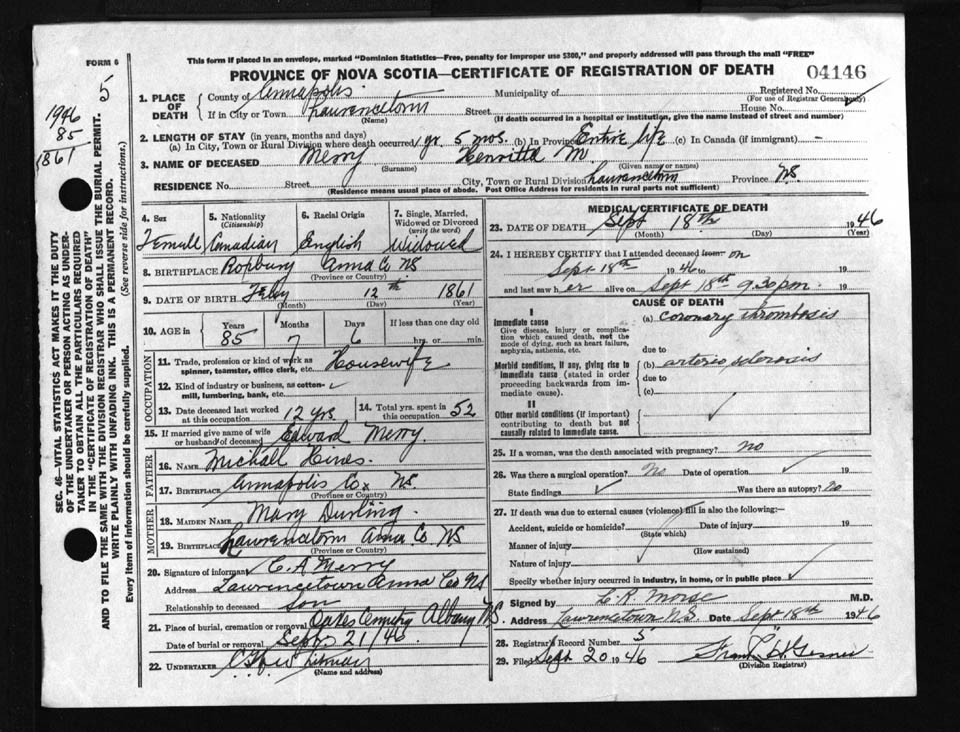 This form if placed in an envelope, marked "Dominion Statistics—Free, penalty for improper use $300," and properly addressed will pass through the mail "FREE"
FORM 6
PROVINCE OF NOVA SCOTIA—CERTIFICATE OF REGISTRATION OF DEATH 04146
5
1946
85
1861
SEC. 46—VITAL STATISTICS ACT MAKES IT THE DUTY
OF THE UNDERTAKER OR PERSON ACTING AS UNDER-
TAKER TO OBTAIN ALL THE PARTICULARS REQUIRED
IN THE "CERTIFICATE OF REGISTRATION OF DEATH"
AND TO FILE THE SAME WITH THE DIVISION REGISTRAR WHO SHALL ISSUE THE BURIAL PERMIT.
WRITE PLAINLY WITH UNFADING INK. THIS IS A PERMANENT RECORD.
Every item of information should be carefully supplied. (See reverse side for instructions.)
1. PLACE OF DEATH County of Annapolis Municipality of Registered No.
(For use of Registrar General only)
If in City or Town Lawrencetown Street House No.
(Name) (If death occurred in a hospital or institution, give the name instead of street and number)
2. LENGTH OF STAY (in years, months and days)
(a) In City, Town or Rural Division where death occurred yr 5 mos. (b) In Province Entire life (c) In Canada (if immigrant) —
3. NAME OF DECEASED Merry Henritta M
(Surname) (Given name or names)
RESIDENCE No. Street City, Town or Rural Division Lawrencetown Province N.S.
(Residence means usual place of abode. Post Office Address for residents in rural parts not sufficient)
4. Sex 5. Nationality 6. Racial Origin 7. Single, Married,
(Citizenship) Widowed or Divorced
(write the word)
Femall Canadian English Widowed
8. BIRTHPLACE Roxbury Anna Co NS
(Province or Country)
9. DATE OF BIRTH Feby 12th 1861
(Month) (Day) (Year)
10. AGE in Years Months Days If less than one day old
85 7 6 hrs. or min.
OCCUPATION
11. Trade, profession or kind of work as
spinner, teamster, office clerk, etc. Housewife
12. Kind of industry or business, as cotton-
mill, lumbering, bank, etc.
13. Date deceased last worked
at this occupation 12 yrs
14. Total yrs. spent in
this occupation 52
15. If married give name of wife
or husband of deceased Edward Merry.
FATHER
16. NAME Michall Hines.
17. BIRTHPLACE Annapolis Co. NS.
(Province or Country)
MOTHER
18. MAIDEN NAME Mary Durling.
19. BIRTHPLACE Lawrencetown Anna Co NS
(Province or Country)
20. Signature of informant C. A Merry
Address Lawrencetown Anna Co NS
Relationship to deceased son
21. Place of burial, cremation or removal Oakes Cemetry Albany NS.
Date of burial or removal Sept 21/46
22. UNDERTAKER Whitman
(Name and address)
MEDICAL CERTIFICATE OF DEATH
23. DATE OF DEATH Sept 18th 1946
(Month) (Day) (Year)
24. I HEREBY CERTIFY that I attended deceased from on
Sept 18th 1946 to 19
and last saw her alive on Sept 18th 9.30 pm 19
CAUSE OF DEATH
I
Immediate cause
Give disease, injury or complica-
tion which caused death, not the
mode of dying, such as heart failure,
asphyxia, asthenia, etc.
(a) coronary thrombosis
due to
Morbid conditions, if any, giving rise to
immediate cause (stated in order
proceeding backwards from im-
mediate cause).
(b) arterio sclerosis
due to
(c)
II
Other morbid conditions (if important)
contributing to death but not
causally related to immediate cause.
25. If a woman, was the death associated with pregnancy? no
26. Was there a surgical operation? No Date of operation 19
State findings Was there an autopsy? no
27. If death was due to external causes (violence) fill in also the following:—
Accident, suicide or homicide? Date of injury 19
(State which)
Manner of injury
(How sustained)
Nature of injury
Specify whether injury occurred in industry, in home, or in public place
Signed by L. R. Morse M.D.
Address Lawrencetown N.S. Date Sept 18th 1946
28. Registrar's Record Number 5
29. Filed Sept 20 1946 Frank W.
(Division Registrar)